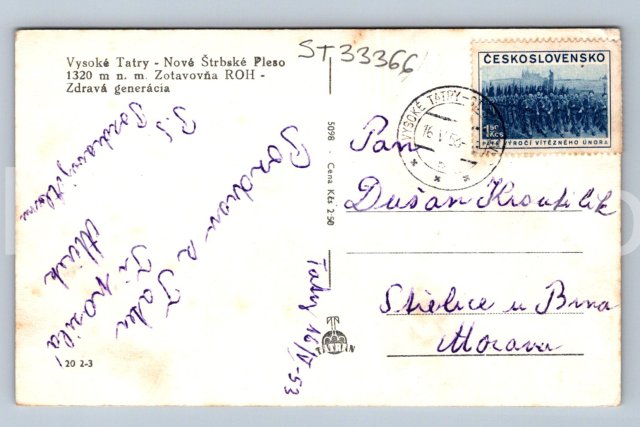 Vysoké Tatry - Nové Štrbské Pleso
1320 m n. m. Zotavovňa ROH -
Zdravá generácia
ST 33366
ČESKOSLOVENSKO
1.50
Kčs
PÁTÉ VÝROČÍ VÍTĚZNÉHO ÚNORA
VYSOKÉ TATRY
5098 - Cena Kčs 2·50
Pan
Dušan
Střelice u Brna
Morava
Pozdrav z
Tater
Tatry 16/V-53
TATRAN
20 2-3